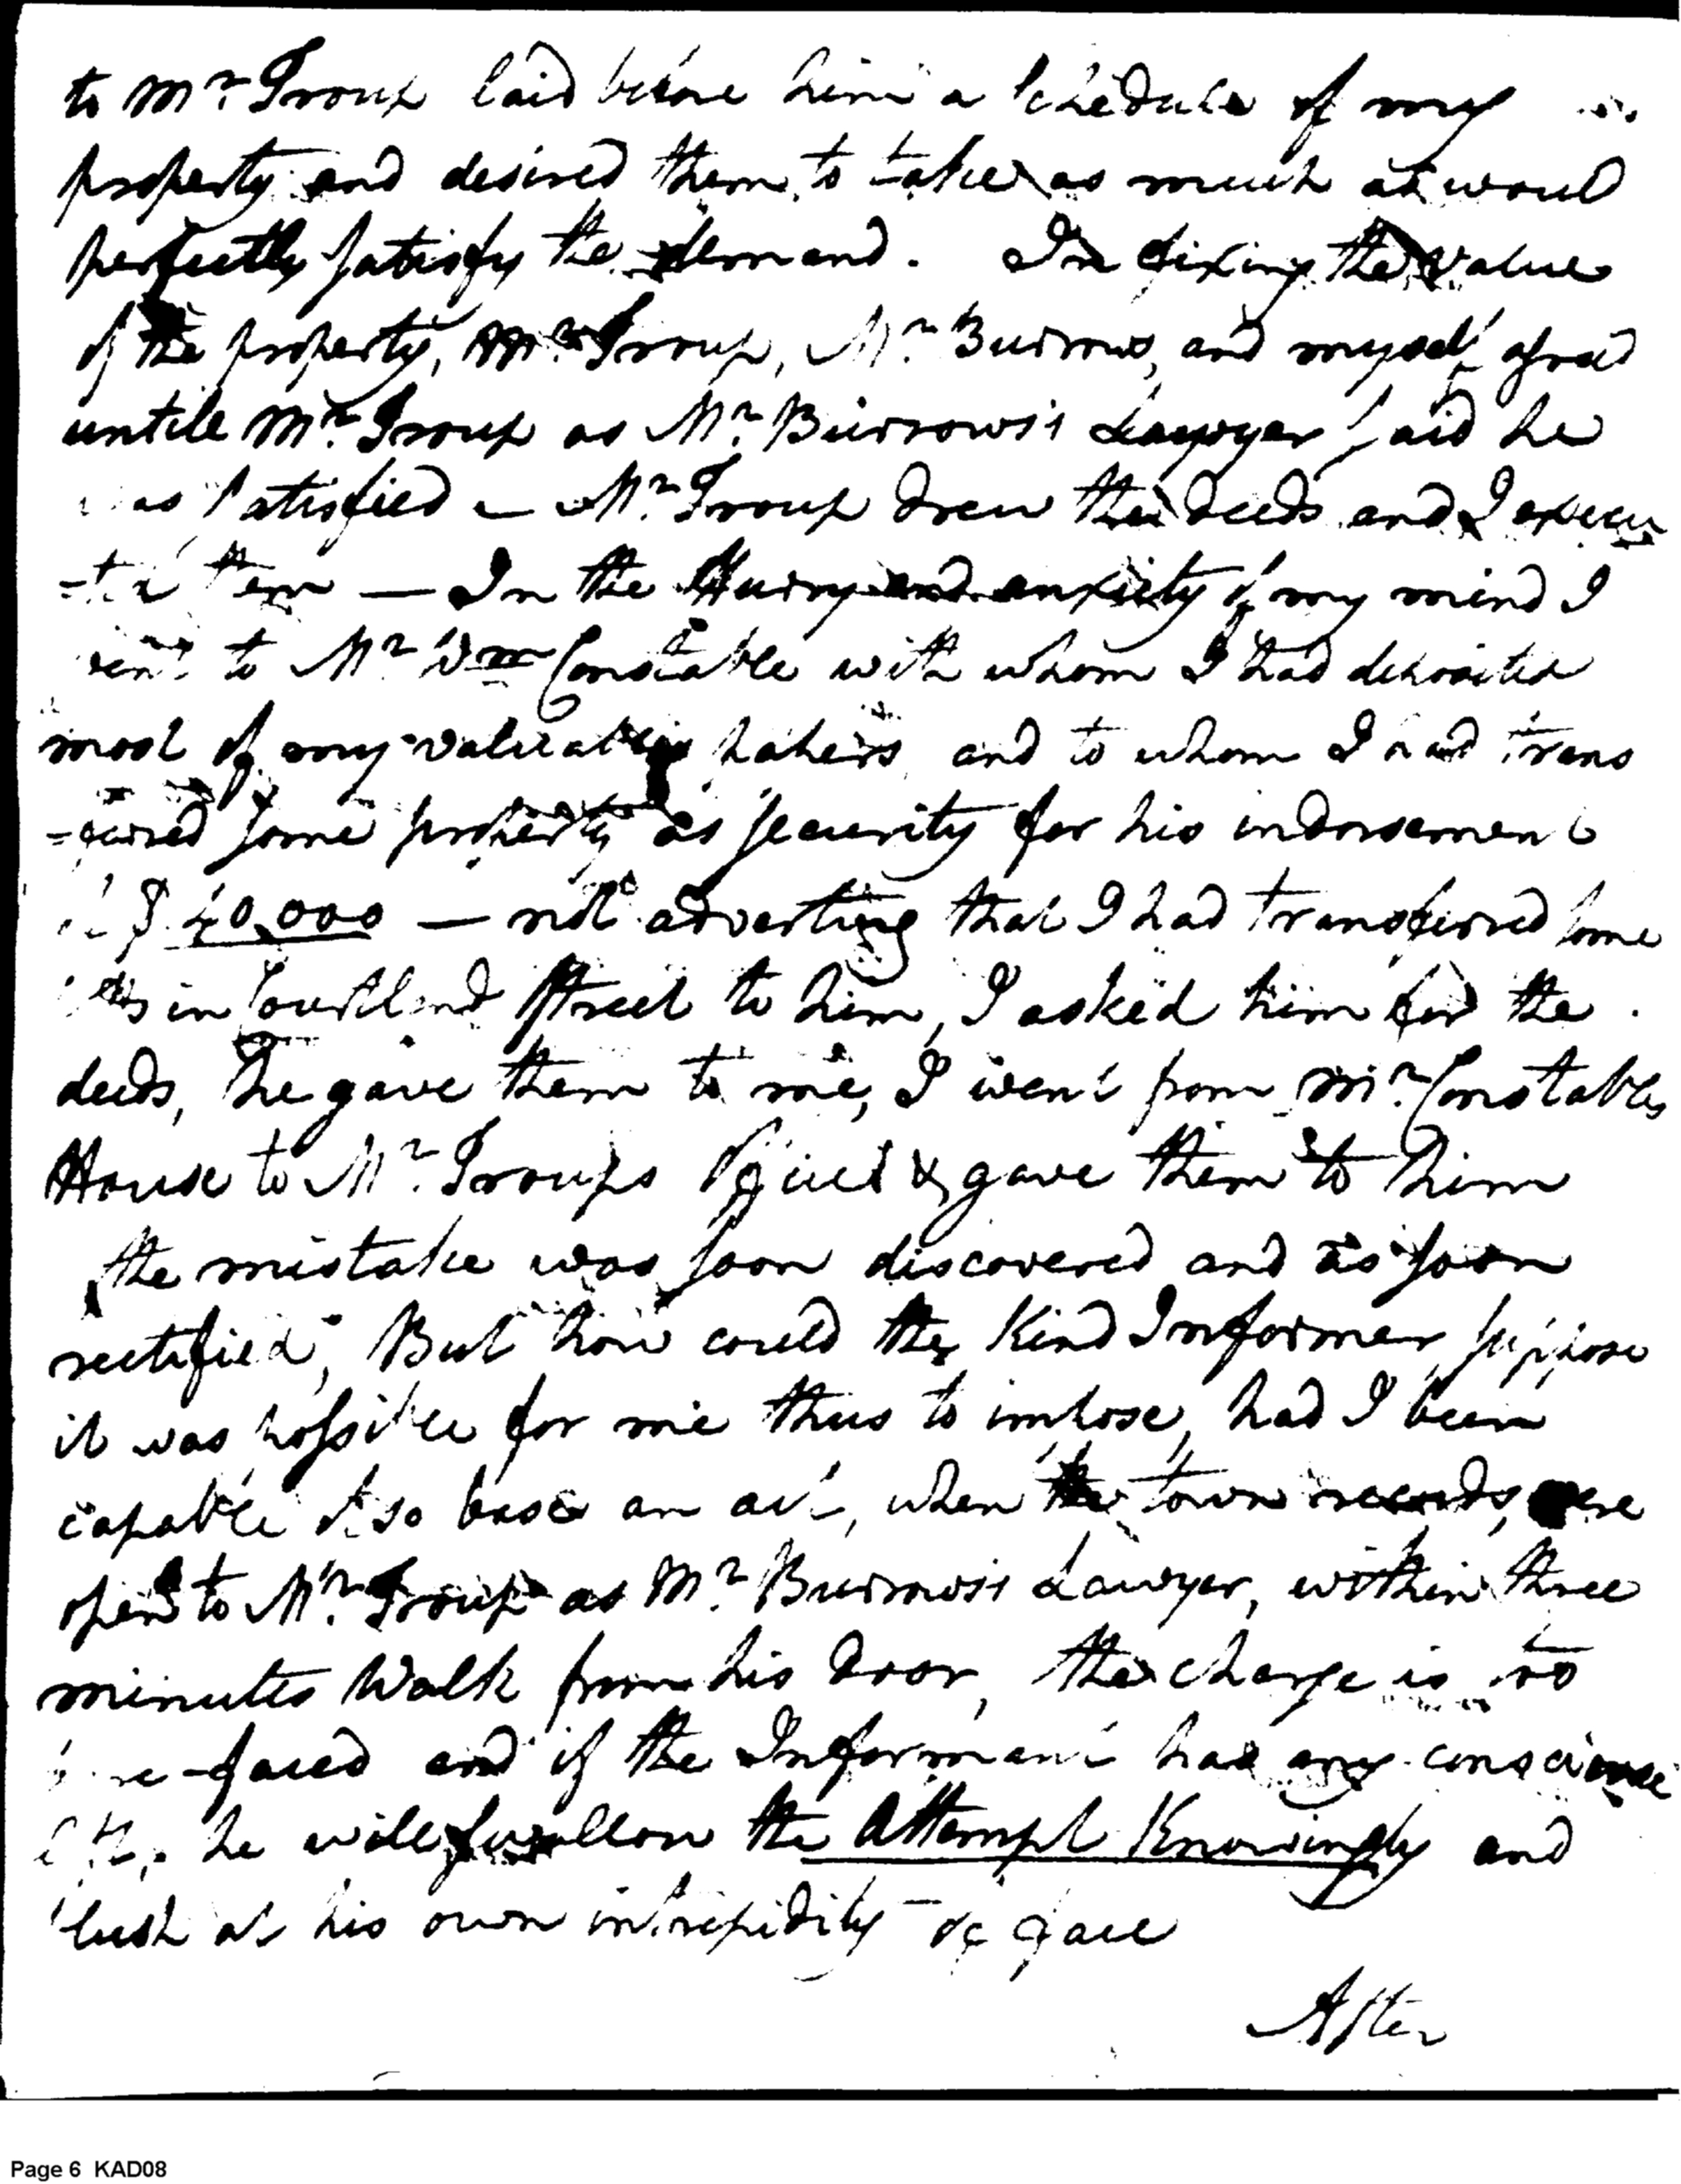 to Mr. Troup laid before him a Schedule of my
property and desired them to take as much as woud
perfectly satisfy the demand. In fixing the value
of the property, Mr. Troup, Mr. Burrows, and myself agreed
untill Mr. Troup as Mr. Burrows's Lawyer said he
was satisfied — Mr. Troup drew the deeds and I execu
-ted them — In the Hurry and anxiety of my mind I
went to Mr. Wm Constable with whom I had deposited
most of my valuable papers and to whom I had trans
-ferred some property as security for his indorsement
of $ 40,000 — not adverting that I had transferred some
lots in Courtlend Street to him, I asked him for the
deeds, he gave them to me, I went from Mr. Constables
House to Mr. Troups Office & gave them to him
the mistake was soon discovered and as soon
rectified, But how could the Kind Informer suppose
it was possible for me thus to impose, had I been
capable of so base an act, when the town records, were
open to Mr. Troup as Mr. Burrows's Lawyer, within three
minutes Walk from his door, the charge is too
bare-faced and if the Informant has any conscience
left, he will swallow the Attempt Knowingly and
blush at his own intrepidity of face
After
Page 6 KAD08